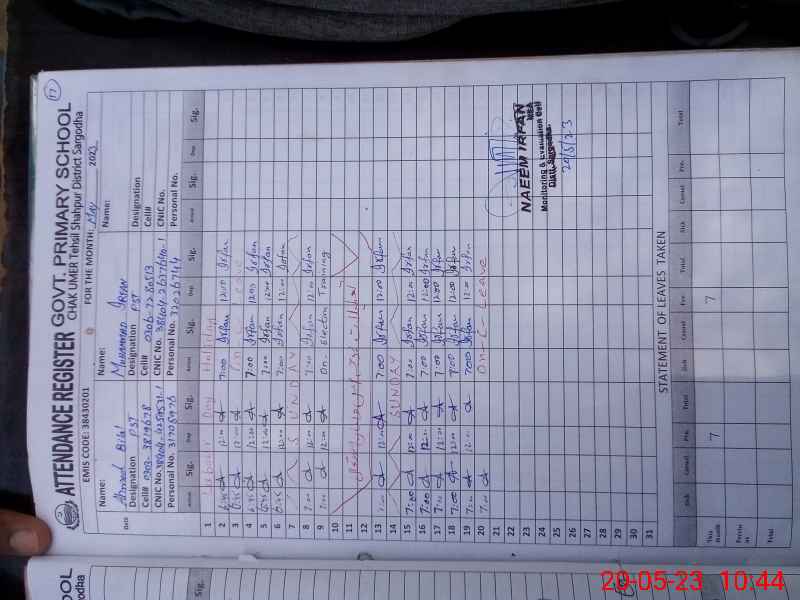 17
ATTENDANCE REGISTER GOVT. PRIMARY SCHOOL
CHAK UMER Tehsil Shahpur District Sargodha
EMIS CODE: 38430201
FOR THE MONTH: May 2023
Name: Ahmad Bilal
Name: Muhammad Irfan
Name:
Designation PST
Designation PST
Designation
Cell# 0303-3819678
Cell# 0306-7280513
Cell#
CNIC No.
CNIC No. 38404-2637640-1
CNIC No.
Personal No. 31708976
Personal No. 32026744
Personal No.
Date Arrival Sig. Dep Sig. Arrival Sig. Dep Sig. Arrival Sig. Dep Sig.
1 Labour Day Holiday
2 6:45 12:00 7:00 Irfan 12:00 Irfan
3 6:45 12:00 On Leave
4 6:45 12:00 7:00 Irfan 12:00 Irfan
5 6:45 12:00 7:00 Irfan 12:00 Irfan
6 6:45 12:00 7:00 Irfan 12:00 Irfan
7 SUNDAY
8 7:00 12:00 7:00 Irfan 12:00 Irfan
9 7:00 12:00 On Election Training
10
11
12
13 7:00 12:00 7:00 Irfan 12:00 Irfan
14 SUNDAY
15 7:00 12:00 7:00 Irfan 12:00 Irfan
16 7:00 12:00 7:00 Irfan 12:00 Irfan
17 7:00 12:00 7:00 Irfan 12:00 Irfan
18 7:00 12:00 7:00 Irfan 12:00 Irfan
19 7:00 12:00 7:00 Irfan 12:00 Irfan
20 7:00 On C Leave
21
22
23
24
25
26
27
28
29
30
31
NAEEM IRFAN
MEA
Monitoring & Evaluation Cell
Distt. Sargodha.
20/5/23
STATEMENT OF LEAVES TAKEN
Sick Casual Pre. Total Sick Casual Pre. Total Sick Casual Pre. Total
This month 7 7
Previous
Total
OOL
rgodha
Sig.
20-05-23 10:44